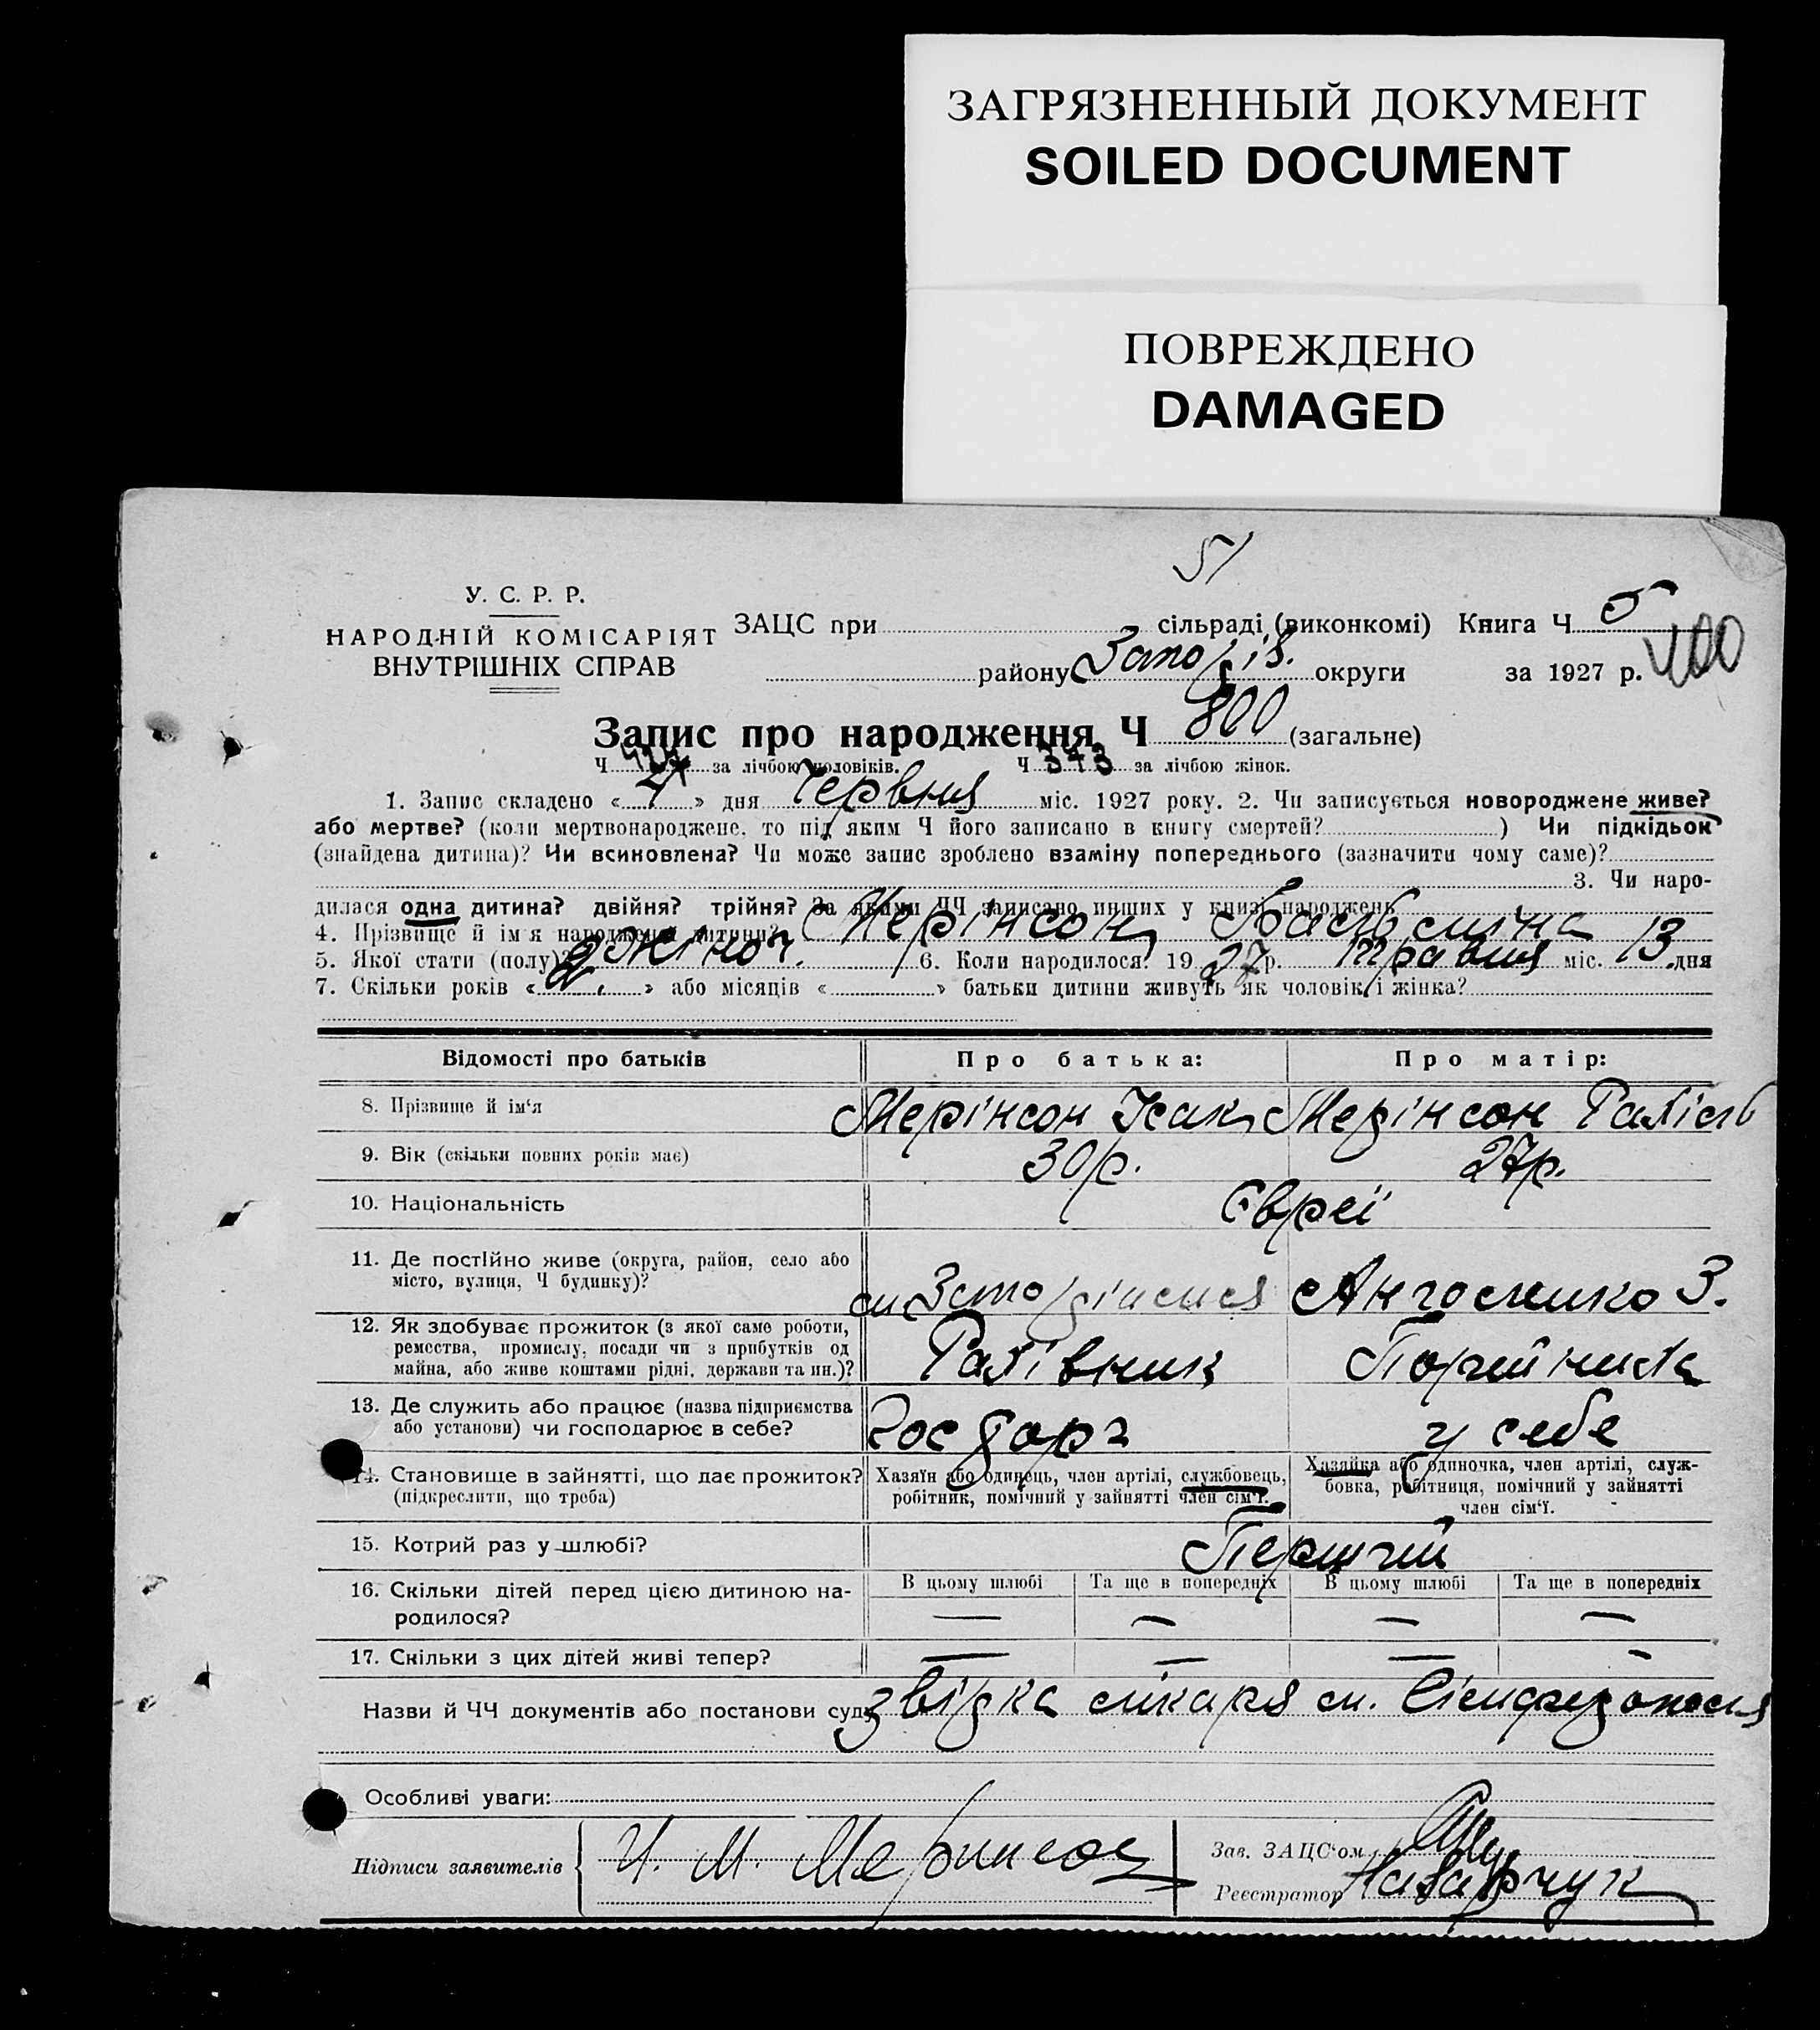 ЗАГРЯЗНЕННЫЙ ДОКУМЕНТ
SOILED DOCUMENT
ПОВРЕЖДЕНО
DAMAGED
51
У. С. Р. Р.
НАРОДНІЙ КОМІСАРІЯТ
ВНУТРІШНІХ СПРАВ
ЗАЦС при сільраді (виконкомі) Книга Ч 5
району Запоріз. округи за 1927 р. 400
Запис про народження Ч 800 (загальне)
Ч 427 за лічбою чоловіків. Ч 373 за лічбою жінок.
1. Запис складено « 4 » дня Червня міс. 1927 року. 2. Чи записується новороджене живе?
або мертве? (коли мертвонароджене, то під яким Ч його записано в книгу смертей? ) Чи підкідьок
(знайдена дитина)? Чи всиновлена? Чи може запис зроблено взаміну попереднього (зазначити чому саме)?
3. Чи наро-
дилася одна дитина? двійня? трійня? За якими ЧЧ записано инших у книзі народжень
4. Прізвище й ім'я народженої дитини? Мерінсон
5. Якої стати (полу)? жіноч. 6. Коли народилося? 1927 р. травня міс. 13 дня
7. Скільки років « 2. » або місяців « » батьки дитини живуть як чоловік і жінка?
Відомості про батьків Про батька: Про матір:
8. Прізвище й ім'я Мерінсон Ісак Мерінсон
9. Вік (скільки повних років має) 30 р. 27 р.
10. Національність Євреї
11. Де постійно живе (округа, район, село або
місто, вулиця, Ч будинку)? м. Запоріжжя 3.
12. Як здобуває прожиток (з якої саме роботи,
ремества, промислу, посади чи з прибутків од
майна, або живе коштами рідні, держави та ин.)?
13. Де служить або працює (назва підприємства
або установи) чи господарює в себе? у себе
14. Становище в зайнятті, що дає прожиток?
(підкреслити, що треба)
Хазяїн або одинець, член артілі, службовець,
робітник, помічний у зайнятті член сім'ї.
Хазяйка або одиночка, член артілі, служ-
бовка, робітниця, помічний у зайнятті
член сім'ї.
15. Котрий раз у шлюбі? Перший
16. Скільки дітей перед цією дитиною на-
родилося?
В цьому шлюбі Та ще в попередніх В цьому шлюбі Та ще в попередніх
— — — —
17. Скільки з цих дітей живі тепер? — — — —
Назви й ЧЧ документів або постанови суду звідка лікаря
Особливі уваги:
Підписи заявителів И. М. Меринсон
Зав. ЗАЦС'ом
Реєстратор